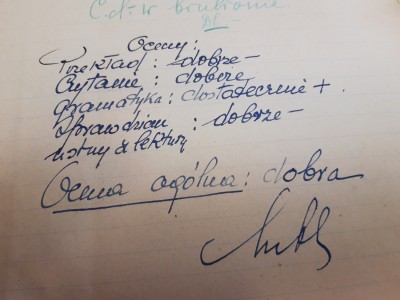 C.d. w brulionie.
Oceny:
Przekład: dobrze -
Czytanie: dobrze
gramatyka: dostatecznie +.
Sprawdzian : dobrze -
ustny z lektury
Ocena ogólna: dobra